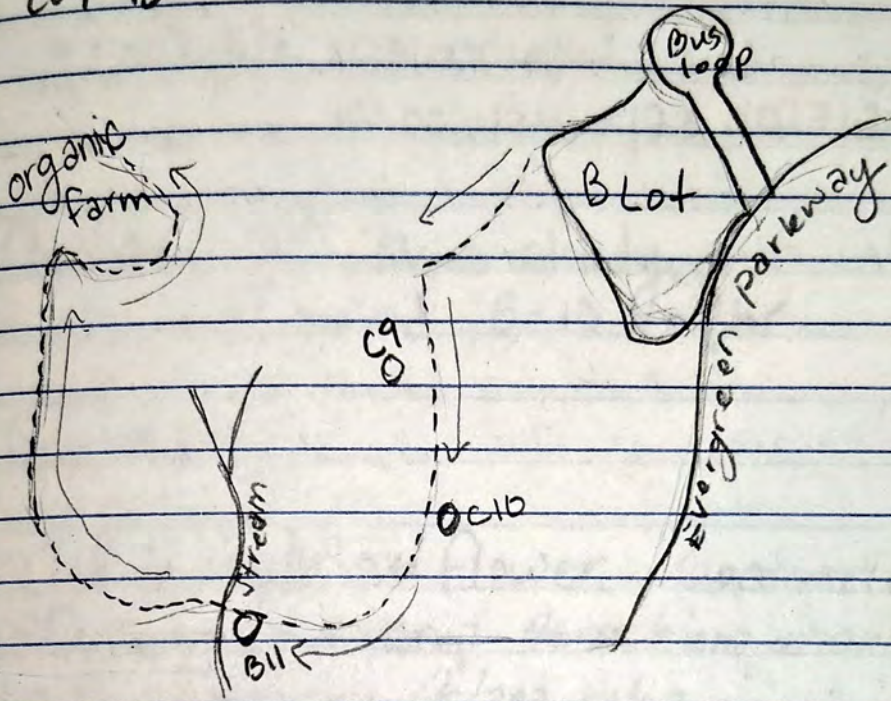 Bus
loop
organic
farm
B Lot
Evergreen parkway
C9
C10
stream
B11